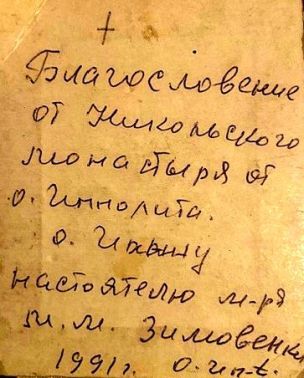 +
Благословение
от Никольского
монастыря от
о. Ипполита.
о.
настоятелю м-ря
м.м. Зимовенки
1991г. о. Ип-т.